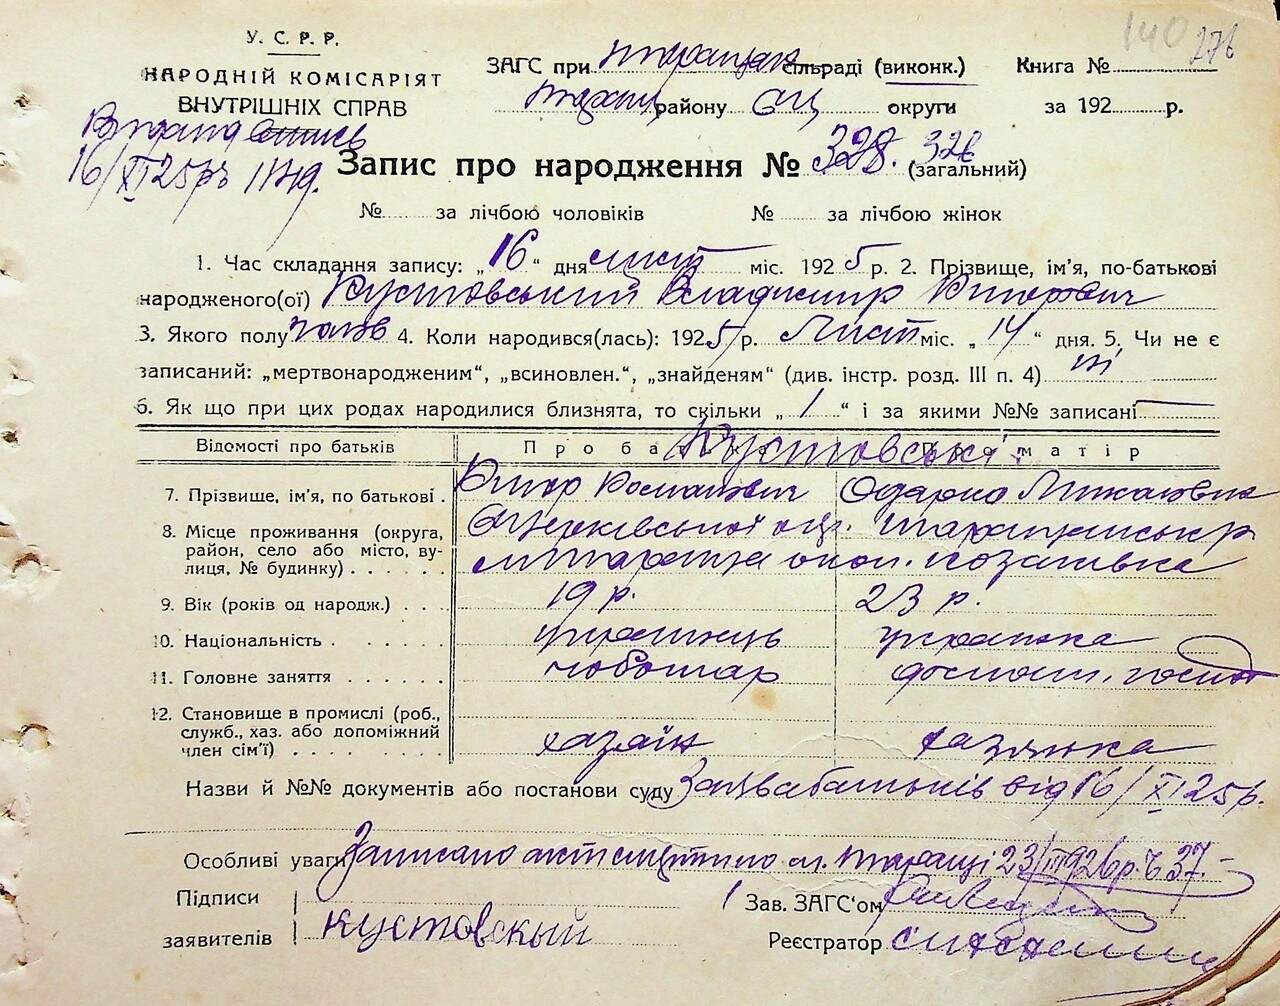 140 276
У. С. Р. Р.
НАРОДНІЙ КОМІСАРІЯТ
ВНУТРІШНІХ СПРАВ
ЗАГС при Таращан сільраді (виконк.) Книга №
Таращ району БЦ округи за 192 р.
16/XI 25р
Запис про народження № 328. 328 (загальний)
№ за лічбою чоловіків № за лічбою жінок
1. Час складання запису: „16“ дня лист міс. 1925 р. 2. Прізвище, ім'я, по-батькові
народженого(ої) Кустовський Владимир Вікторович
3. Якого полу чолов 4. Коли народився(лась): 1925 р. Лист міс. „14“ дня. 5. Чи не є
записаний: „мертвонародженим“, „всиновлен.“, „знайденям“ (див. інстр. розд. III п. 4) ні
6. Як що при цих родах народилися близнята, то скільки „1“ і за якими №№ записані
Відомості про батьків Про батька Про матір
Кустовські
7. Прізвище, ім'я, по батькові . Віктор Романович Одарка Михаловна
8. Місце проживання (округа, район, село або місто, вулиця, № будинку) . . . . . . Б/Церківської окр. Таращанськ р
м Тараща окол. Козаківка
9. Вік (років од народж.) . . . 19 р. 23 р.
10. Національність . . . . . . українець українка
11. Головне заняття . . . . . . чоботар домашн. господ
12. Становище в промислі (роб.,
служб., хаз. або допоміжний
член сім'ї) . . . . . . . . хазяїн хазяйка
Назви й №№ документів або постанови суду Заява батьків від 16/XI 25р.
Особливі уваги Записано акт смерти по м. Таращі 23/III 926р. № 37.
Підписи
заявителів Кустовский
Зав. ЗАГС'ом
Реєстратор